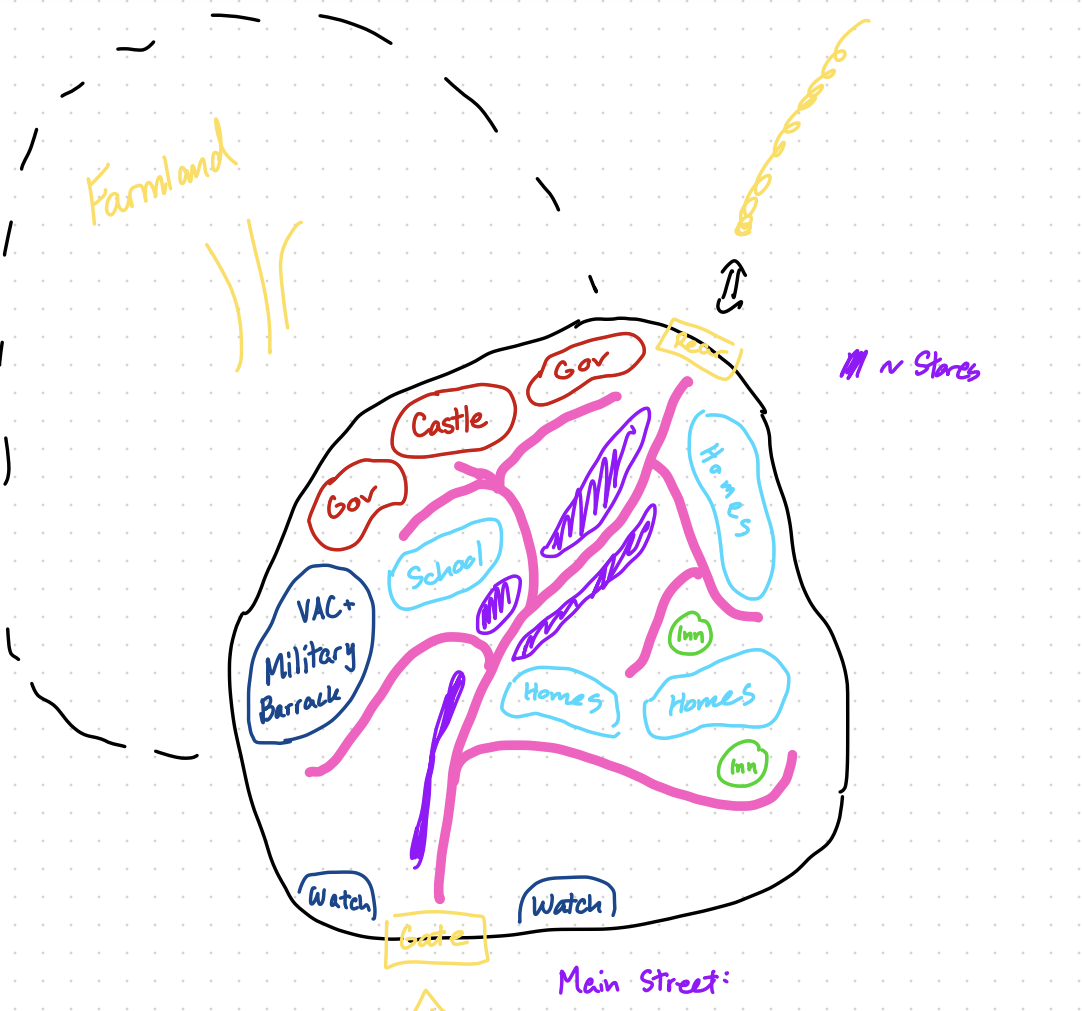 Farmland
Rear
~ Stores
Gov
Castle
Gov
Homes
School
VAC+
Military
Barrack
Inn
Homes
Homes
Inn
Watch
Watch
Gate
Main Street: